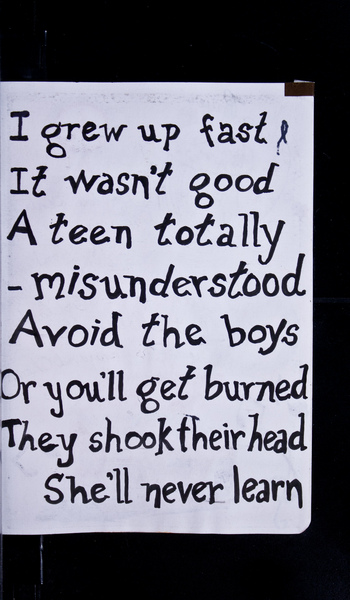 I grew up fast,
It wasn't good
A teen totally
- misunderstood
Avoid the boys
Or you'll get burned
They shook their head
She'll never learn